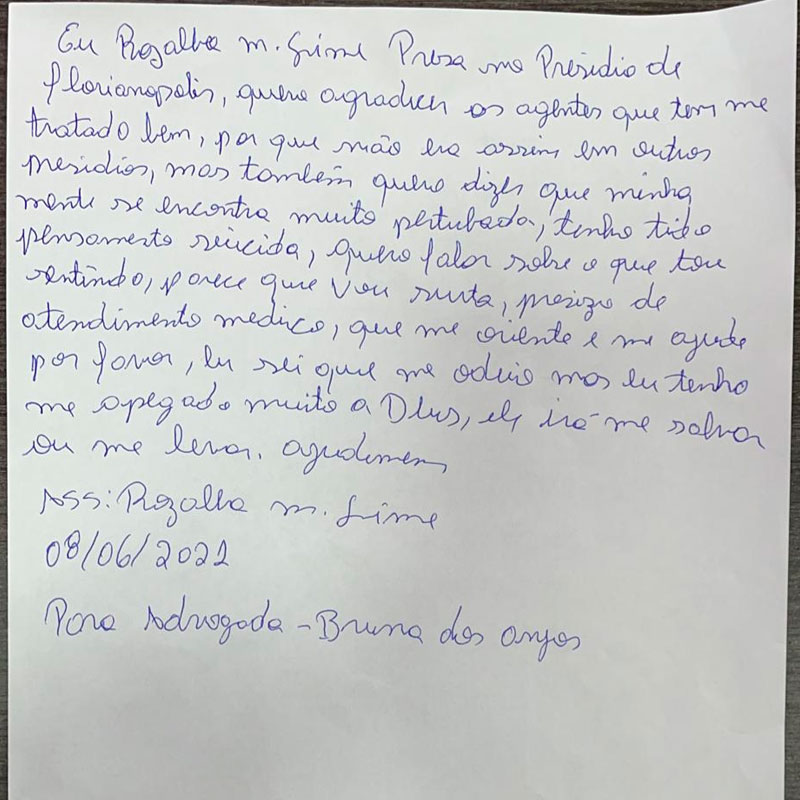 Eu Rozalba m. Grime Presa no Presidio de
florianopolis, quero agradecer os agentes que tem me
tratado bem, por que não era assim em outros
presidios, mas também quero dizer que minha
mente se encontra muito pertubada, tenho tido
pensamento suicida, quero falar sobre o que tou
sentindo, parece que vou surta, presizo de
atendimento medico, que me oriente e me ajude
por favor, Eu sei que me odeio mas Eu tenho
me apegado muito a Deus, ele irá me salvar
ou me levar. ajudemem
Ass: Rozalba m. Grime
08/06/2021
Para Advogada - Bruna dos anjos